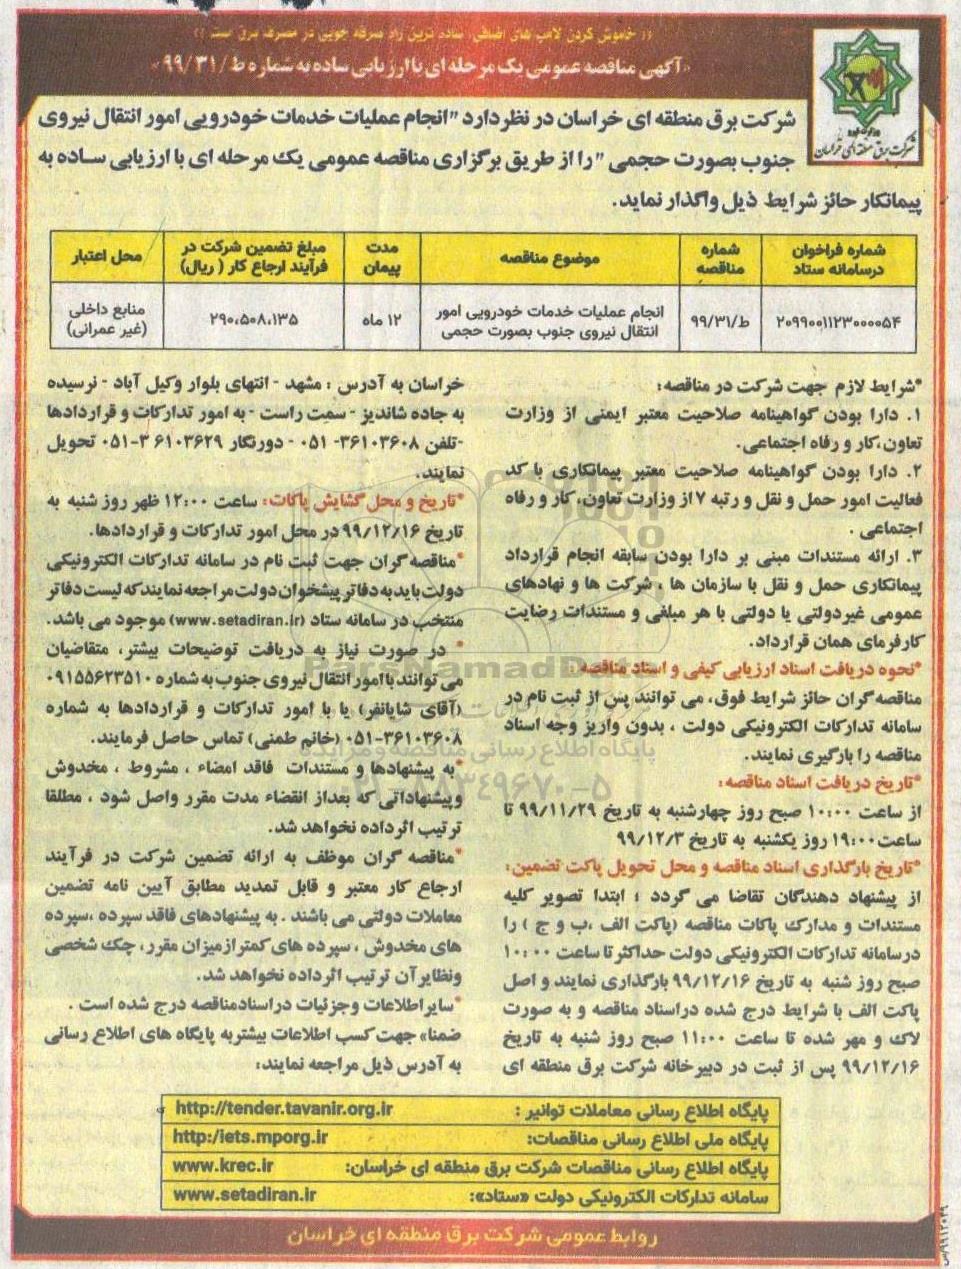 (( خاموش کردن لامپ های اضافی، ساده ترین راه صرفه جویی در مصرف برق است ))
«آگهی مناقصه عمومی یک مرحله ای با ارزیابی ساده به شماره ط/۹۹/۳۱»
شرکت برق منطقه ای خراسان
شرکت برق منطقه ای خراسان در نظر دارد "انجام عملیات خدمات خودرویی امور انتقال نیروی
جنوب بصورت حجمی "را از طریق برگزاری مناقصه عمومی یک مرحله ای با ارزیابی ساده به
پیمانکار حائز شرایط ذیل واگذار نماید.
شماره فراخوان درسامانه ستاد | شماره مناقصه | موضوع مناقصه | مدت پیمان | مبلغ تضمین شرکت در فرآیند ارجاع کار ( ریال) | محل اعتبار
۲۰۹۹۰۰۱۱۲۳۰۰۰۰۵۴ | ط/۹۹/۳۱ | انجام عملیات خدمات خودرویی امور انتقال نیروی جنوب بصورت حجمی | ۱۲ ماه | ۲۹۰،۵۰۸،۱۳۵ | منابع داخلی (غیر عمرانی)
*شرایط لازم جهت شرکت در مناقصه:
۱. دارا بودن گواهینامه صلاحیت معتبر ایمنی از وزارت
تعاون،کار و رفاه اجتماعی.
۲. دارا بودن گواهینامه صلاحیت معتبر پیمانکاری با کد
فعالیت امور حمل و نقل و رتبه ۷ از وزارت تعاون، کار و رفاه
اجتماعی .
۳. ارائه مستندات مبنی بر دارا بودن سابقه انجام قرارداد
پیمانکاری حمل و نقل با سازمان ها ، شرکت ها و نهادهای
عمومی غیردولتی یا دولتی با هر مبلغی و مستندات رضایت
کارفرمای همان قرارداد.
*نحوه دریافت اسناد ارزیابی کیفی و اسناد مناقصه:
مناقصه گران حائز شرایط فوق، می توانند پس از ثبت نام در
سامانه تدارکات الکترونیکی دولت ، بدون واریز وجه اسناد
مناقصه را بارگیری نمایند.
*تاریخ دریافت اسناد مناقصه:
از ساعت ۱۰:۰۰ صبح روز چهارشنبه به تاریخ ۹۹/۱۱/۲۹ تا
ساعت ۱۹:۰۰ روز یکشنبه به تاریخ ۹۹/۱۲/۳
*تاریخ بارگذاری اسناد مناقصه و محل تحویل پاکت تضمین:
از پیشنهاد دهندگان تقاضا می گردد ؛ ابتدا تصویر کلیه
مستندات و مدارک پاکات مناقصه (پاکت الف ،ب و ج ) را
درسامانه تدارکات الکترونیکی دولت حداکثر تا ساعت ۱۰:۰۰
صبح روز شنبه به تاریخ ۹۹/۱۲/۱۶ بارگذاری نمایند و اصل
پاکت الف با شرایط درج شده دراسناد مناقصه و به صورت
لاک و مهر شده تا ساعت ۱۱:۰۰ صبح روز شنبه به تاریخ
۹۹/۱۲/۱۶ پس از ثبت در دبیرخانه شرکت برق منطقه ای
خراسان به آدرس : مشهد - انتهای بلوار وکیل آباد - نرسیده
به جاده شاندیز - سمت راست - به امور تدارکات و قراردادها
-تلفن ۳۶۱۰۳۶۰۸- ۰۵۱ - دورنگار ۶۱۰۳۶۲۹ ۳-۰۵۱ تحویل
نمایند.
*تاریخ و محل گشایش پاکات: ساعت ۱۲:۰۰ ظهر روز شنبه به
تاریخ ۹۹/۱۲/۱۶ در محل امور تدارکات و قراردادها.
*مناقصه گران جهت ثبت نام در سامانه تدارکات الکترونیکی
دولت باید به دفاتر پیشخوان دولت مراجعه نمایند که لیست دفاتر
منتخب در سامانه ستاد (www.setadiran.ir) موجود می باشد.
* در صورت نیاز به دریافت توضیحات بیشتر، متقاضیان
می توانند با امور انتقال نیروی جنوب به شماره ۰۹۱۵۵۶۲۳۵۱۰
(آقای شایانفر) یا با امور تدارکات و قراردادها به شماره
۳۶۱۰۳۶۰۸-۰۵۱ (خانم طمنی) تماس حاصل فرمایند.
*به پیشنهادها و مستندات فاقد امضاء ، مشروط ، مخدوش
و پیشنهاداتی که بعداز انقضاء مدت مقرر واصل شود ، مطلقا
ترتیب اثر داده نخواهد شد.
*مناقصه گران موظف به ارائه تضمین شرکت در فرآیند
ارجاع کار معتبر و قابل تمدید مطابق آیین نامه تضمین
معاملات دولتی می باشند . به پیشنهادهای فاقد سپرده ،سپرده
های مخدوش ، سپرده های کمتر از میزان مقرر، چک شخصی
ونظایر آن ترتیب اثر داده نخواهد شد.
*سایر اطلاعات و جزئیات در اسناد مناقصه درج شده است .
ضمنا» جهت کسب اطلاعات بیشتر به پایگاه های اطلاع رسانی
به آدرس ذیل مراجعه نمایند:
ParsNamadData
پایگاه اطلاع رسانی مناقصه و مزایده
۰۲۱-۸۸۳۴۹۶۷۰-۵
پایگاه اطلاع رسانی معاملات توانیر : http://tender.tavanir.org.ir
پایگاه ملی اطلاع رسانی مناقصات: http:/iets.mporg.ir
پایگاه اطلاع رسانی مناقصات شرکت برق منطقه ای خراسان: www.krec.ir
سامانه تدارکات الکترونیکی دولت «ستاد»: www.setadiran.ir
روابط عمومی شرکت برق منطقه ای خراسان